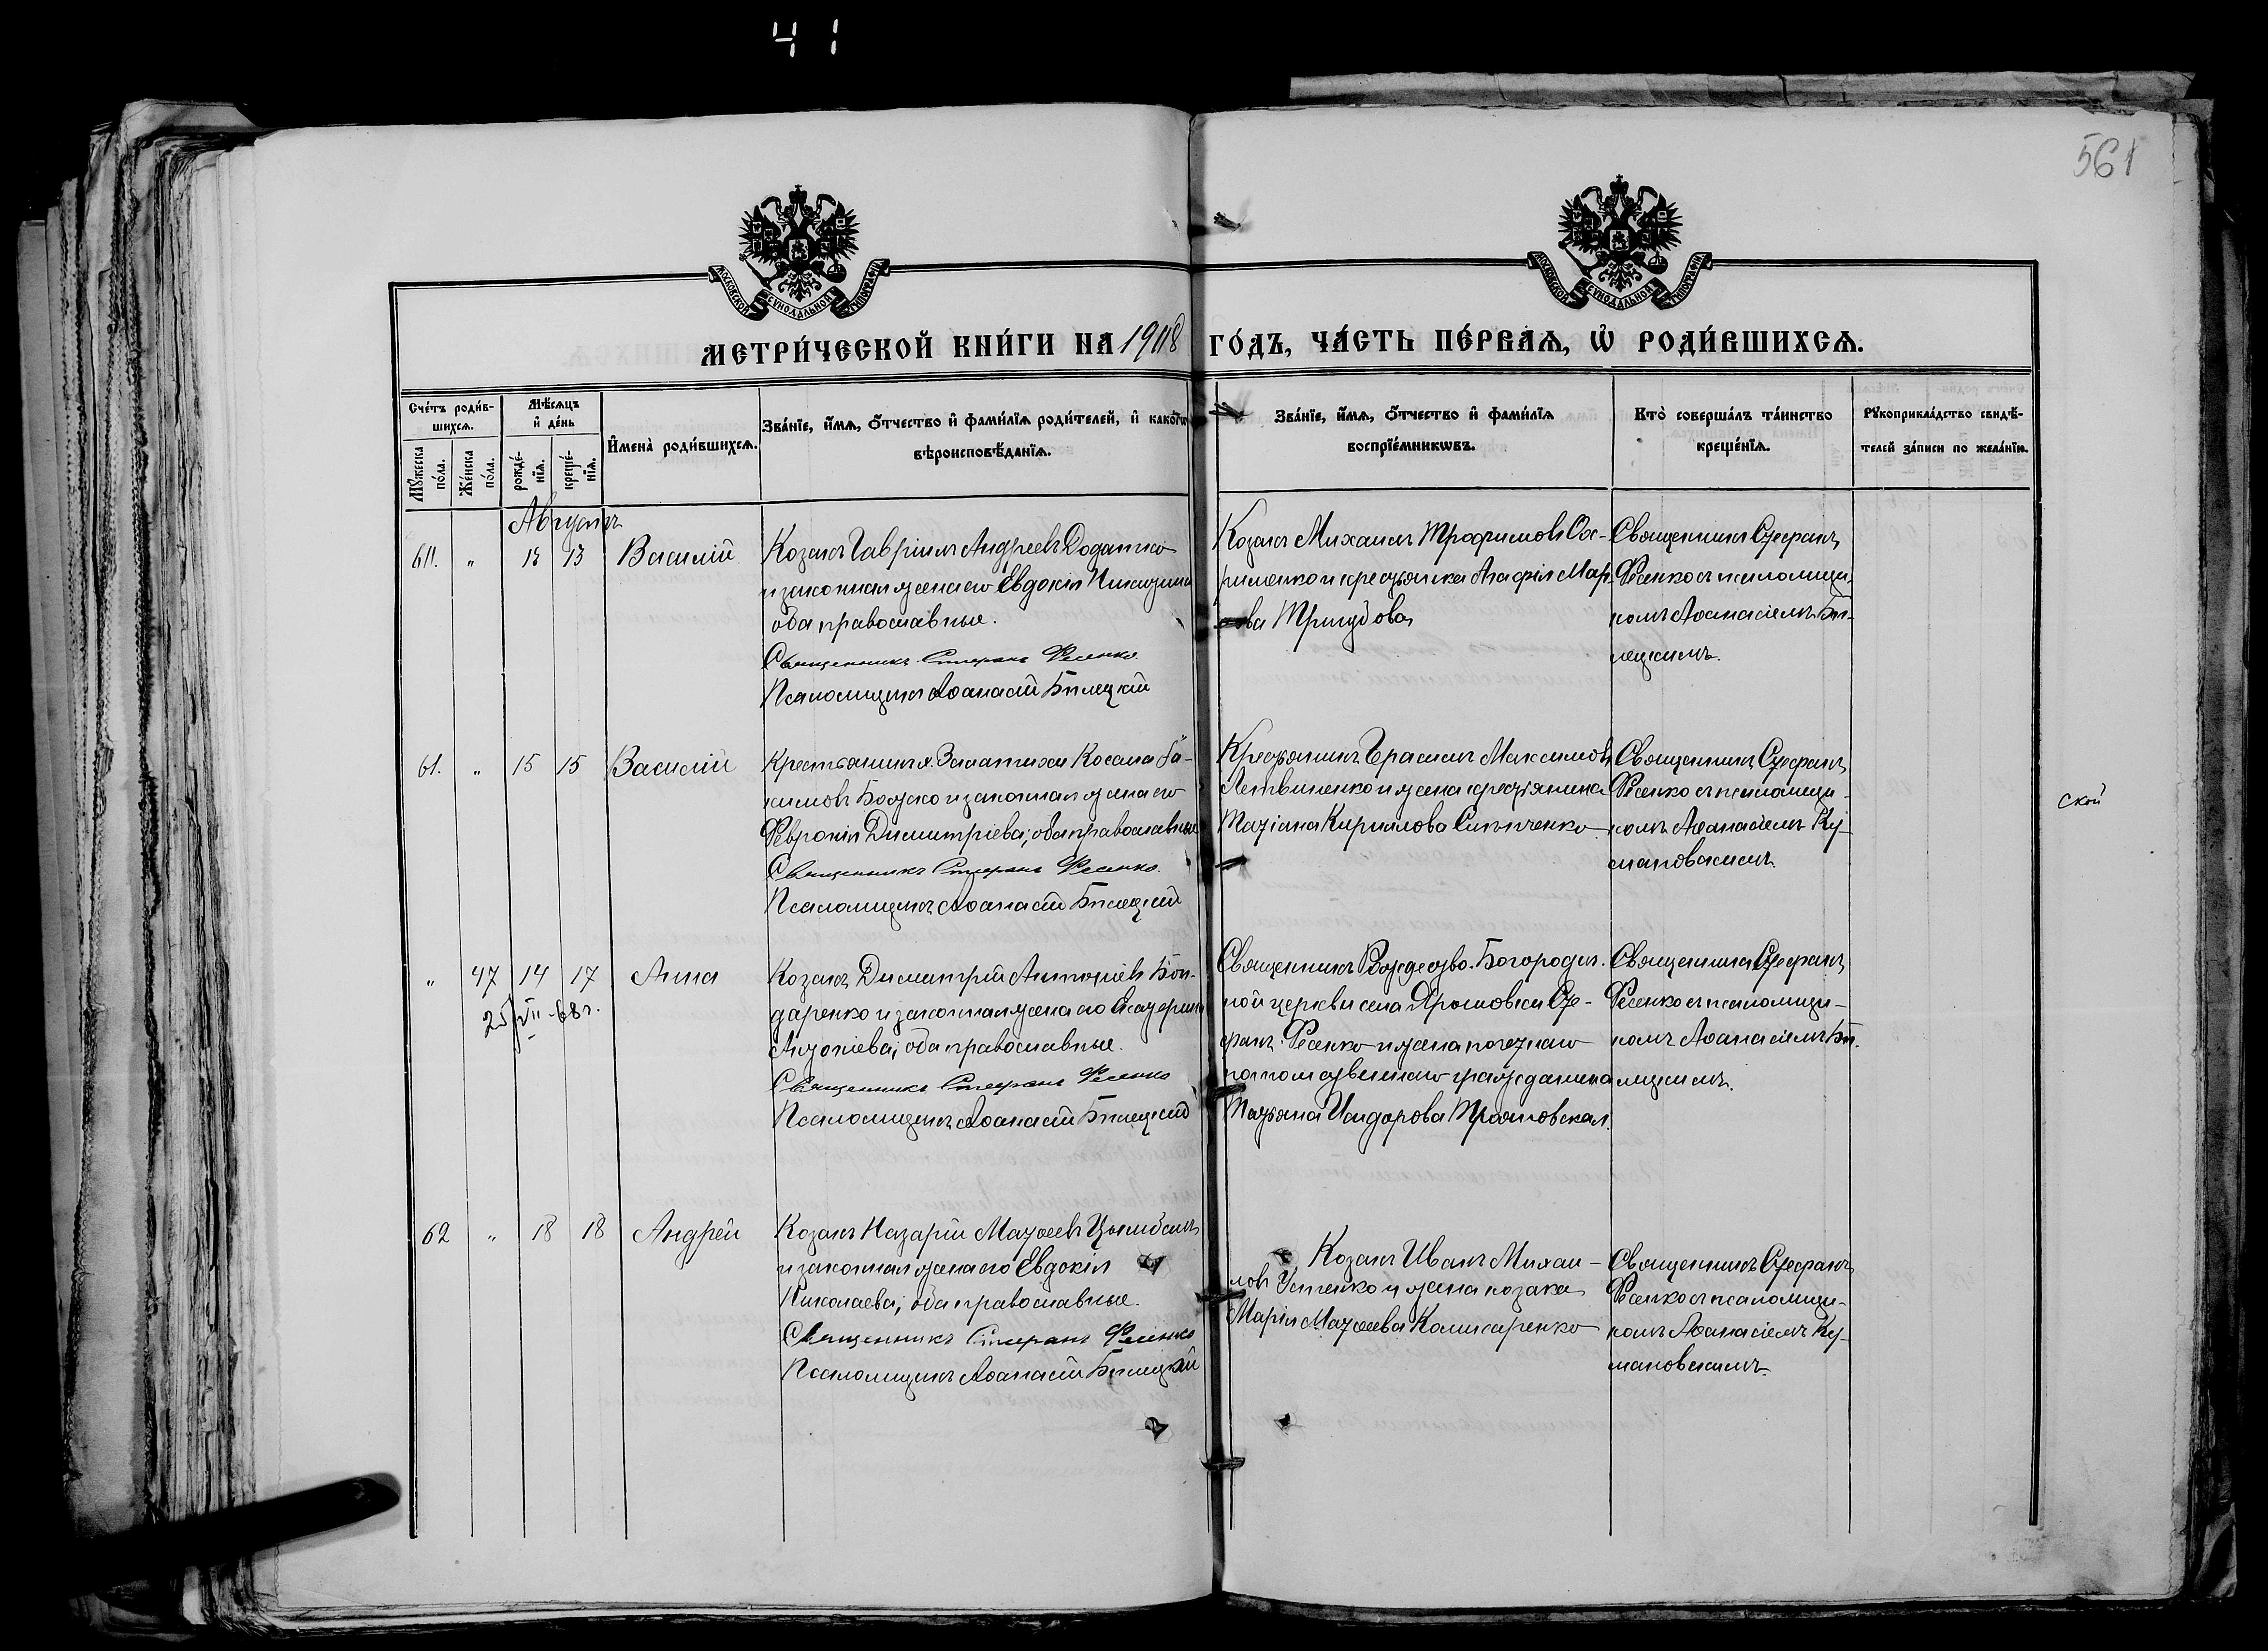 41
561
МОСКОВСКОЙ СѴНОДАЛЬНОЙ ТИПОГРАФІИ
МОСКОВСКОЙ СѴНОДАЛЬНОЙ ТИПОГРАФІИ
МЕТРИ́ЧЕСКОЙ КНИ́ГИ НА 1908 ГО́ДЪ, ЧА́СТЬ ПЕ́РВАѦ, Ѡ РОДИ́ВШИХСѦ.
Сче́тъ роди́в-
шихсѧ.
Мѣ́сѧцъ
и де́нь
Мꙋ́жеска
по́ла.
Же́нска
по́ла.
рожде́-
нїѧ.
креще́-
нїѧ.
Имена̀ роди́вшихсѧ.
Зва́нїе, и́мѧ, о́тчество и фами́лїѧ роди́телей, и како́гѡ
вѣроисповѣ́данїѧ.
Зва́нїе, и́мѧ, о́тчество и фами́лїѧ
воспрїе́мникѡвъ.
Кто̀ соверша́лъ та́инство
креще́нїѧ.
Рꙋкоприкла́дство свидѣ́-
телей за́писи по жела́нїю.
Августъ
60. " 13 13 Василій
Козакъ Гавріилъ Андреевъ Додатко
и законная жена его Евдокія
оба православные.
Священникъ Стефанъ Фесенко.
Псаломщикъ Аѳанасій Бѣлецкій
Козакъ Михаилъ Трофимовъ Ох-
рименко и крестьянка Агафія Мар-
кова
Священникъ Стефанъ
Фесенко съ псаломщи-
комъ Аѳанасіемъ Бѣ-
лецкимъ.
61. " 15 15 Василій
Крестьянинъ х. Косьма Іа-
кимовъ Божко и законная жена его
Феврония Димитріева; оба православные
Священникъ Стефанъ Фесенко.
Псаломщикъ Аѳанасій Бѣлецкій
Крестьянинъ Герасимъ Максимовъ
Летвиненко и жена крестьянина
Татіана Кириллова
Священникъ Стефанъ
Фесенко съ псаломщи-
комъ Аѳанасіемъ Ку-
мановскимъ.
ской
" 47 14 17 Анна
25/VII-68г.
Козакъ Димитрій Антоніевъ Бон-
даренко и законная жена его Екатерина
Антоніева; оба православные.
Священникъ Стефанъ Фесенко
Псаломщикъ Аѳанасій Бѣлецкій
Священникъ Рождество-Богородич-
ной церкви села Ярошовки Сте-
фанъ Фесенко и жена почетнаго
потомственнаго гражданина
Татьяна Исидорова Трояновская.
Священникъ Стефанъ
Фесенко съ псаломщи-
комъ Аѳанасіемъ Бѣ-
лецкимъ.
62 " 18 18 Андрей
Козакъ Назарій Матѳеевъ
и законная жена его Евдокія
Николаева; оба православные.
Священникъ Стефанъ Фесенко
Псаломщикъ Аѳанасій Бѣлецкій
Козакъ Иванъ Михаи-
ловъ Устенко и жена козака
Марія Матѳеева Комисаренко
Священникъ Стефанъ
Фесенко съ псаломщи-
комъ Аѳанасіемъ Ку-
мановскимъ.